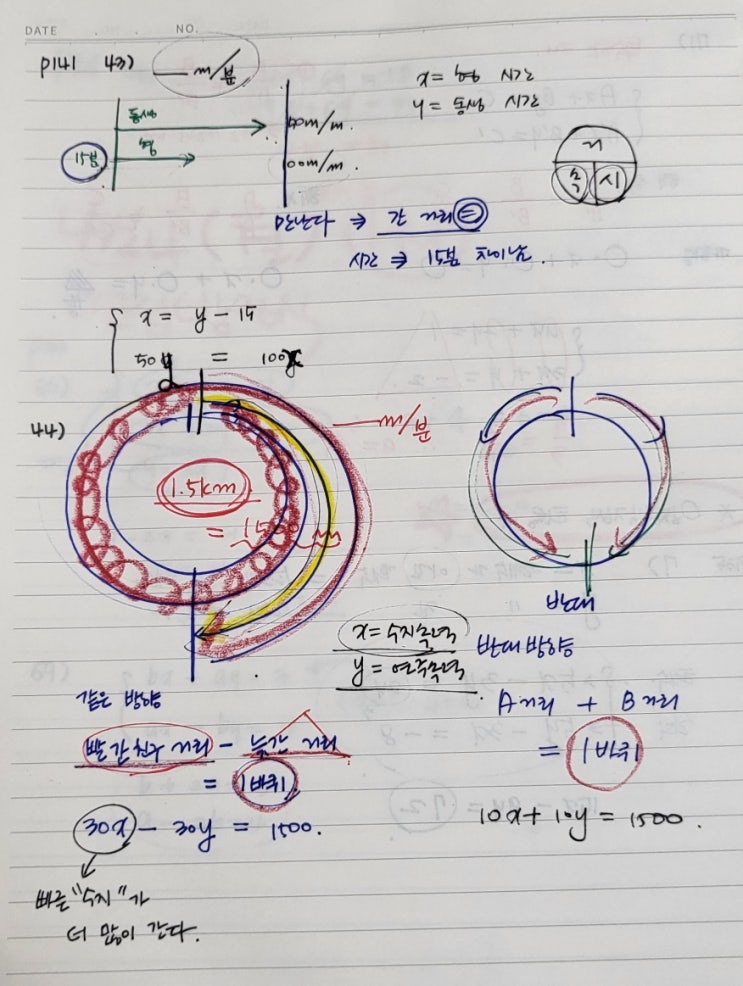 DATE NO.
p141 43) m/분
x = 형 시간
y = 동생 시간
동생
50m/m.
15분
형
100m/m.
속 시
만난다 ⇒ 간 거리 =
시간 ⇒ 15분 차이남.
x = y - 15
50y = 100x
44)
m/분
1.5km
= 1500m
반대
x = 수지속력
y = 연주속력
반대 방향
같은 방향
A거리 + B거리
= 1바퀴
빨간친구 거리 - 늦간 거리
= 1바퀴
30x - 30y = 1500.
10x + 10y = 1500.
빠른 "수지"가
더 많이 간다.